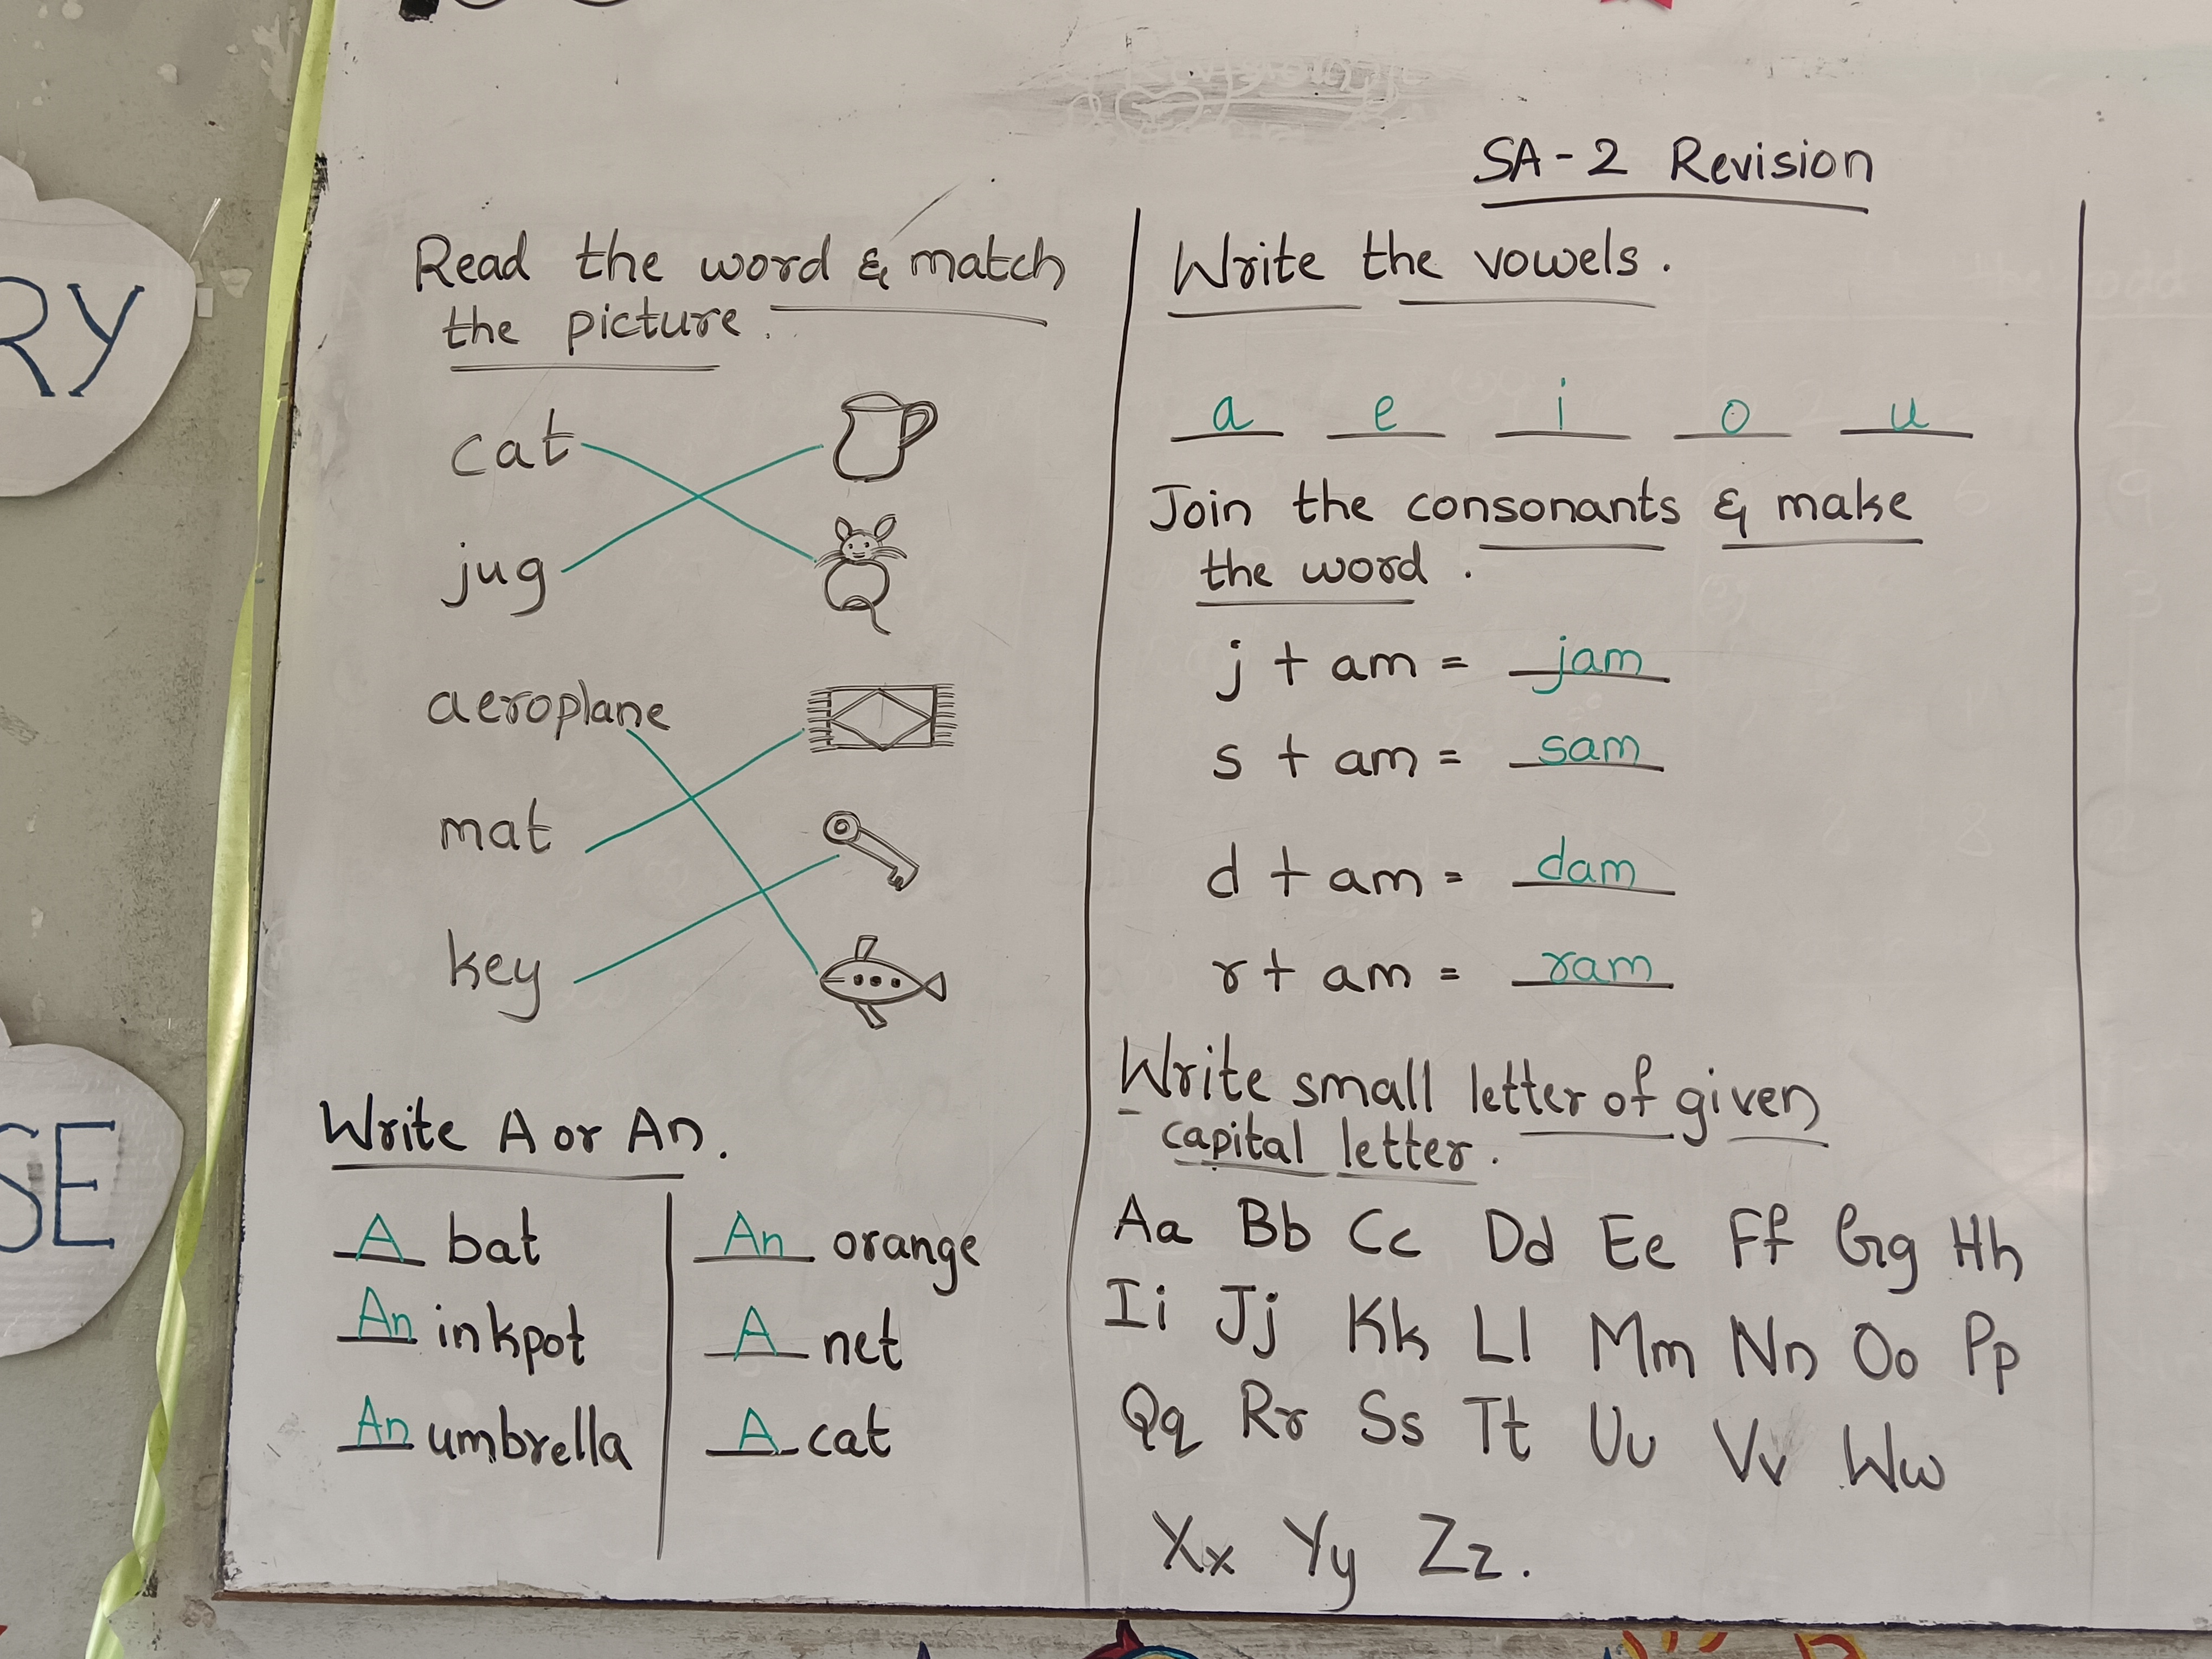 RY
SE
SA-2 Revision
Read the word & match
the picture.
cat
jug
aeroplane
mat
key
Write A or An.
A bat
An inkpot
An umbrella
An orange
A net
A cat
Write the vowels.
a e i o u
Join the consonants & make
the word.
j + am = jam
s + am = sam
d + am = dam
r + am = ram
Write small letter of given
capital letter.
Aa Bb Cc Dd Ee Ff Gg Hh
Ii Jj Kk Ll Mm Nn Oo Pp
Qq Rr Ss Tt Uu Vv Ww
Xx Yy Zz.